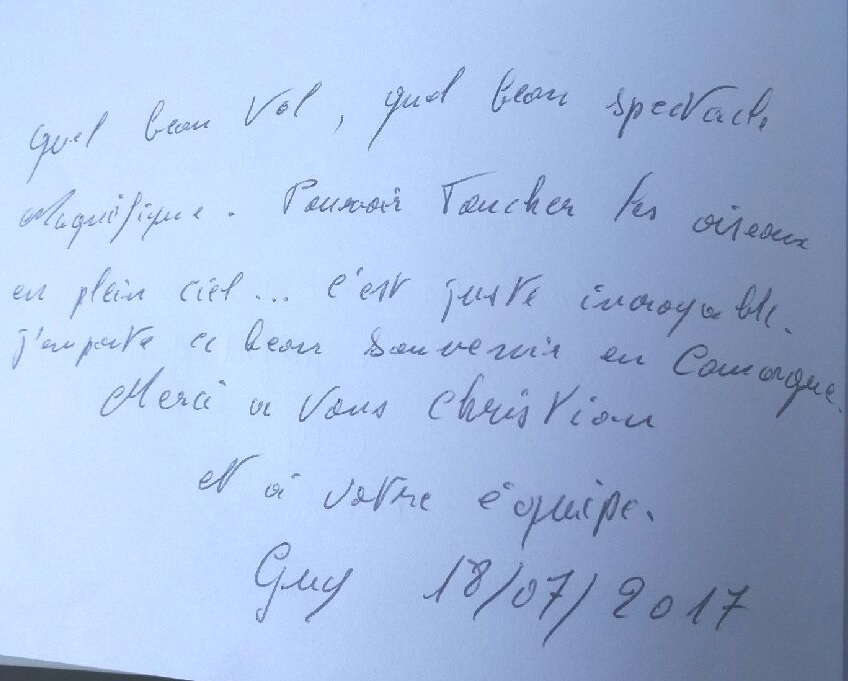 Quel beau Vol, quel beau spectacle
Magnifique. Pouvoir Toucher les oiseaux
en plein ciel... c'est juste incroyable.
j'emporte ce beau souvenir en Camargue.
Merci a vous Christian
et à votre équipe.
Guy 18/07/2017